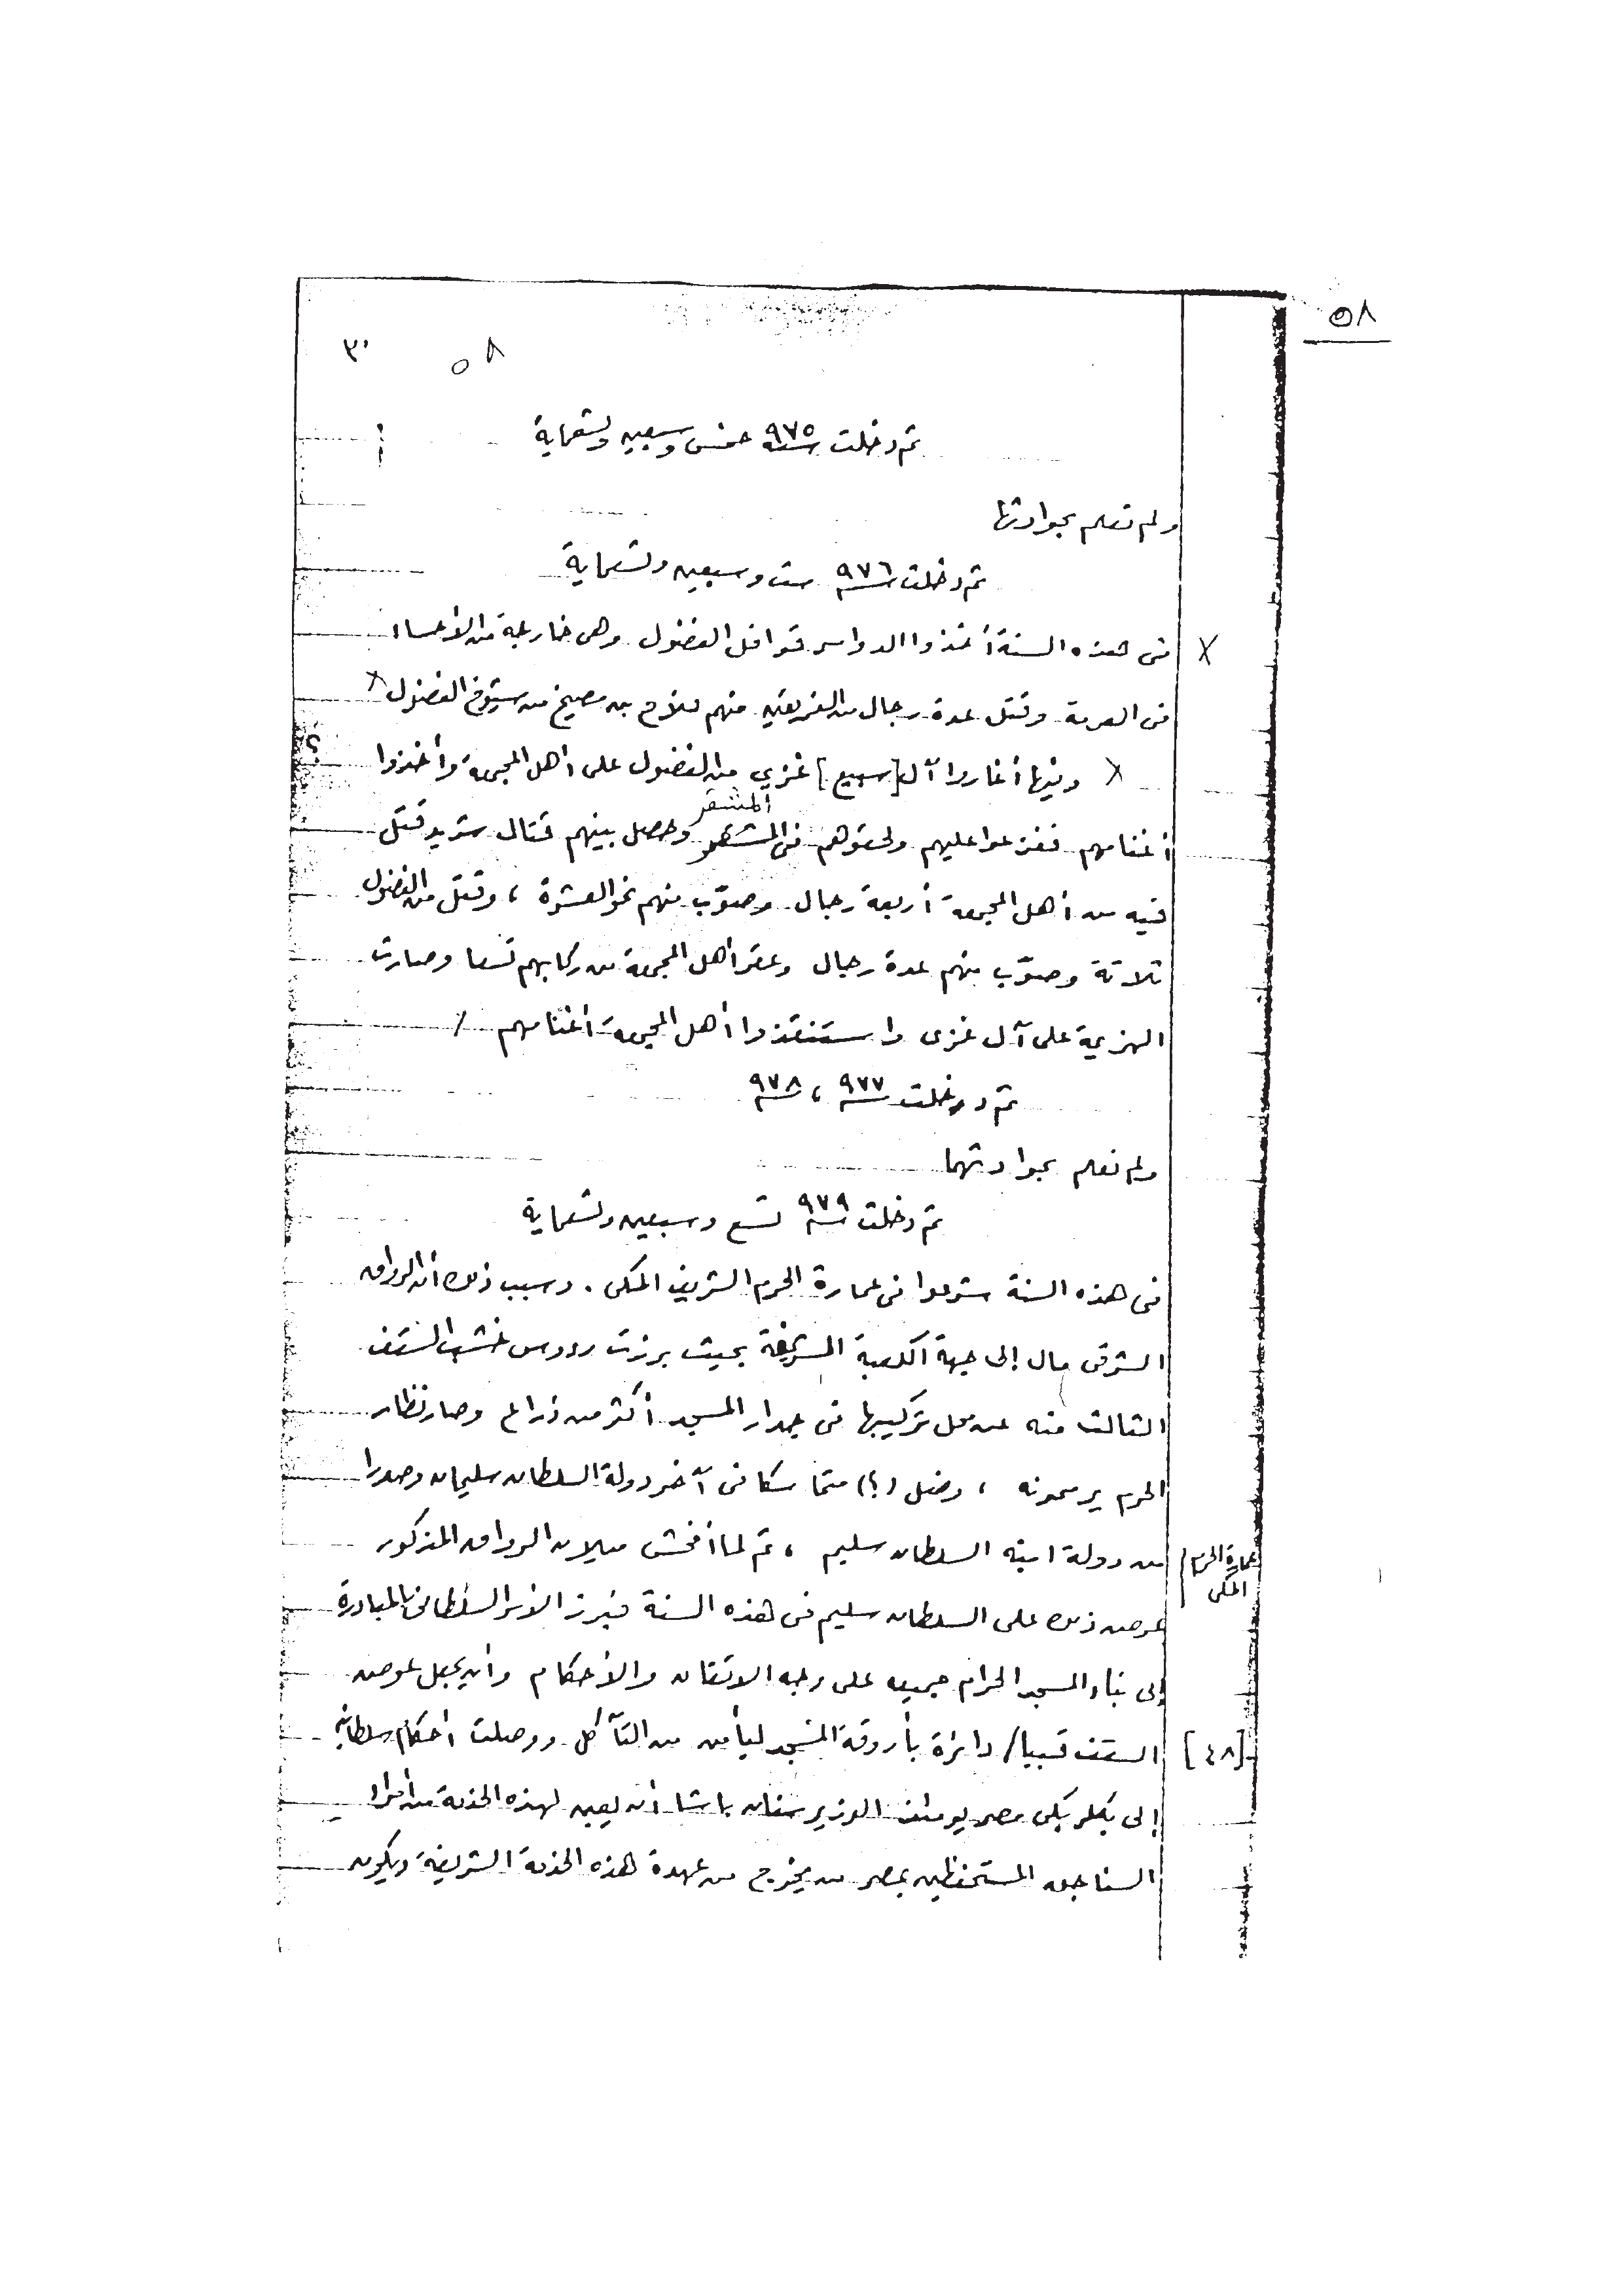 ٥٨
٣٠ ٥٨
ثم دخلت سنة ٩٧٥ خمس وسبعين وتسعماية
ولم نعلم بحوادثها
ثم دخلت سنة ٩٧٦ ست وسبعين وتسعماية
فى هذه السنة أخذوا الدواسر قوافل الفضول وهى خارجة من الأحساء
فى العرمة وقتل عدة رجال من الفريقين منهم فلاح بن مصيخ من شيوخ الفضول
وفيها أغاروا آل [سبيع] غزي من الفضول على أهل المجمعة وأخذوا ؟
المشقر
أغنامهم ففزعوا عليهم ولحقوهم فى وحصل بينهم قتال شديد قتل
فيه من أهل المجمعة أربعة رجال وصوّب منهم نحو العشرة ، وقتل من الفضول
ثلاثة وصوّب منهم عدة رجال وعقر أهل المجمعة من ركابهم تسعا وصارت
الهزيمة على آل غزى واستنقذوا أهل المجمعة أغنامهم
ثم دخلت سنة ٩٧٧ ، سنة ٩٧٨
ولم نعلم بحوادثهما
ثم دخلت سنة ٩٧٩ تسع وسبعين وتسعماية
فى هذه السنة شرعوا فى عمارة الحرم الشريف المكى . وسبب ذلك أن الرواق
الشرقى مال إلى جهة الكعبة الشريفة بحيث برزت رءوس خشب السقف
الثالث منه عن محل تركيبها فى جدار المسجد أكثر من ذراع وصار نظار
الحرم يرممونه ، وضل (؟) متماسكا فى آخر دولة السلطان سليمان وصدرا
من دولة ابنه السلطان سليم ، ثم لما أفحش ميلان الرواق المذكور
عمارة الحرم
المكى
عرض ذلك على السلطان سليم فى هذه السنة فبرز الأمر السلطانى بالمبادرة
إلى بناء المسجد الحرام جميعه على وجه الاتقان والأحكام وأن يجعل عوض
[٤٨] السقف قببا / دائرة بأروقة المسجد ليأمن من التآكل ووصلت أحكام سلطانية
إلى بكلر بكى مصر يومئذ الوزير سنان باشا أن يعين لهذه الخدمة من أمراء
السناجق المستحفظين بمصر من يخرج من عهدة هذه الخدمة الشريفة ويكون